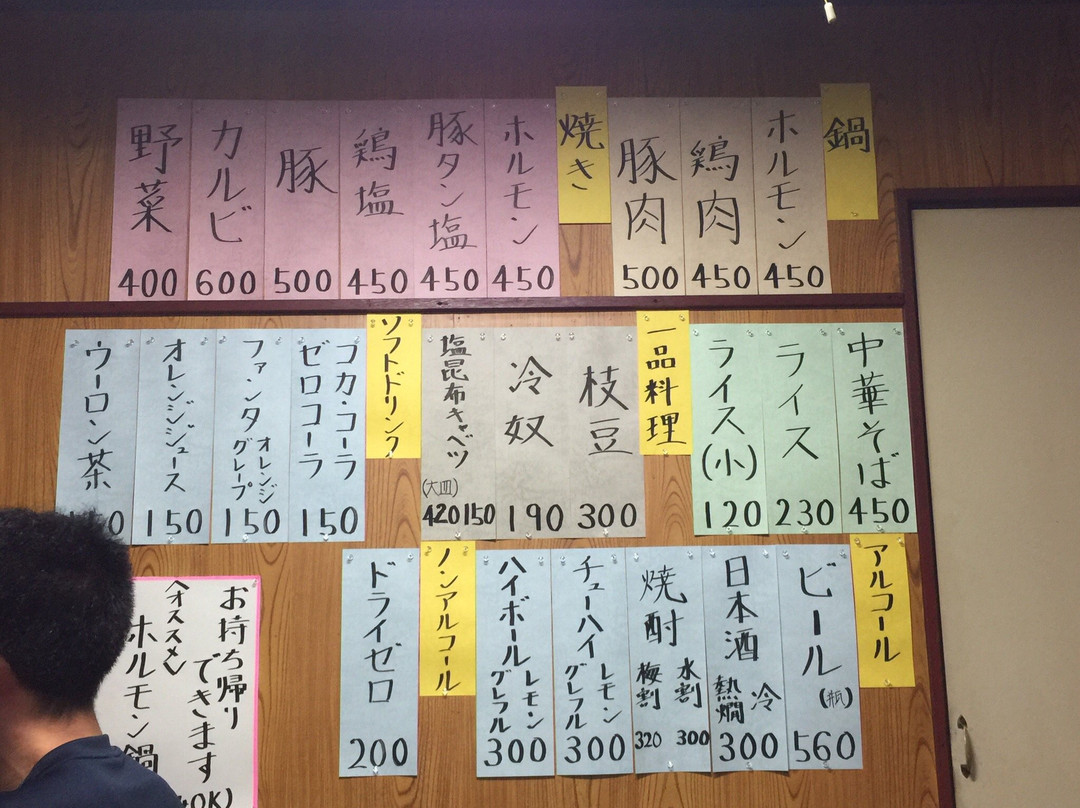 鍋
ホルモン
450
鶏肉
450
豚肉
500
焼き
ホルモン
450
豚タン塩
450
鶏塩
450
豚
500
カルビ
600
野菜
400
中華そば
450
ライス
230
ライス(小)
120
一品料理
枝豆
300
冷奴
190
塩昆布キャベツ
(大皿)
420 150
ソフトドリンク
コカ・コーラ
ゼロコーラ
150
ファンタ
オレンジ
グレープ
150
オレンジジュース
150
ウーロン茶
アルコール
ビール
(瓶)
560
日本酒
冷
熱燗
300
焼酎
水割
300
梅割
320
チューハイ
レモン
グレフル
300
ハイボール
レモン
グレフル
300
ノンアルコール
ドライゼロ
200
お持ち帰り
できます
<オススメ>
ホルモン鍋
OK)